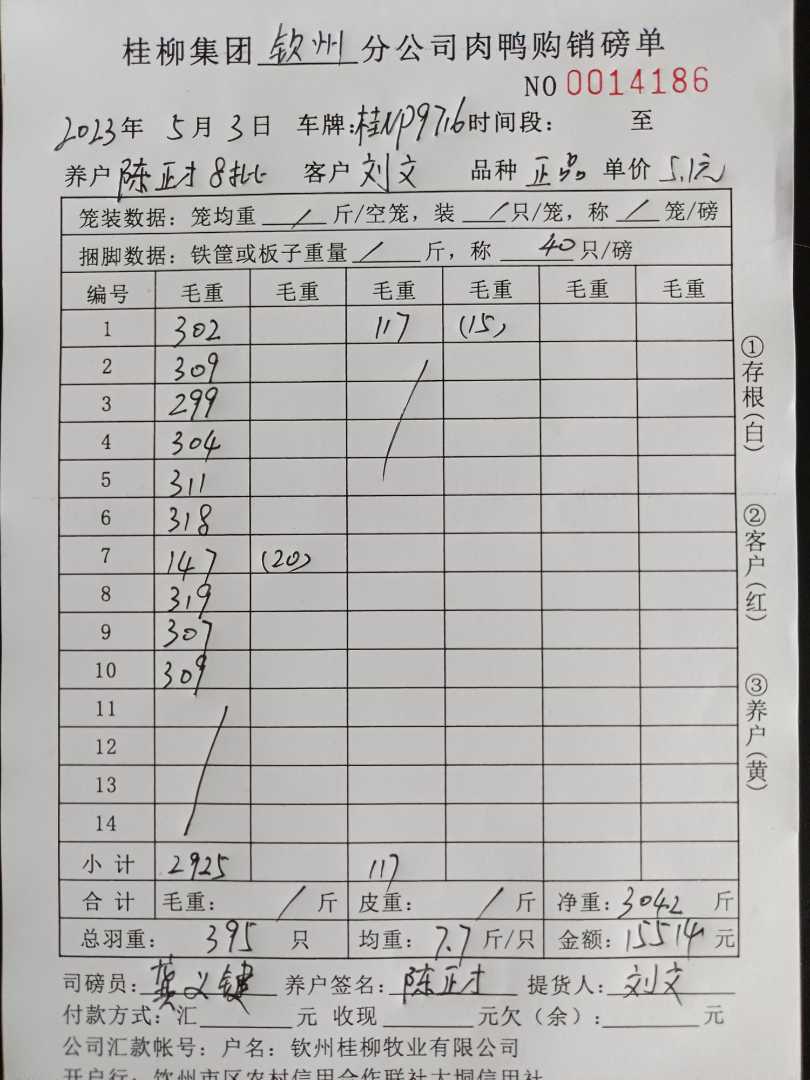 桂柳集团钦州分公司肉鸭购销磅单
NO 0014186
2023年 5月 3日 车牌:桂NP9716 时间段: 至
养户 陈正才8批 客户 刘文 品种 正品 单价 5.1元
笼装数据:笼均重 / 斤/空笼,装 / 只/笼,称 / 笼/磅
捆脚数据:铁筐或板子重量 / 斤,称 40 只/磅
编号 毛重 毛重 毛重 毛重 毛重 毛重
1 302 117 (15)
2 309
3 299
4 304
5 311
6 318
7 147 (20)
8 319
9 307
10 309
11
12
13
14
小计 2925 117
合计 毛重: / 斤 皮重: / 斤 净重:3042 斤
总羽重: 395 只 均重:7.7斤/只 金额:15514元
司磅员:龚义键 养户签名:陈正才 提货人:刘文
付款方式:汇 元 收现 元欠(余): 元
公司汇款帐号:户名:钦州桂柳牧业有限公司
开户行:钦州市区农村信用合作联社大垌信用社
①存根(白)
②客户(红)
③养户(黄)